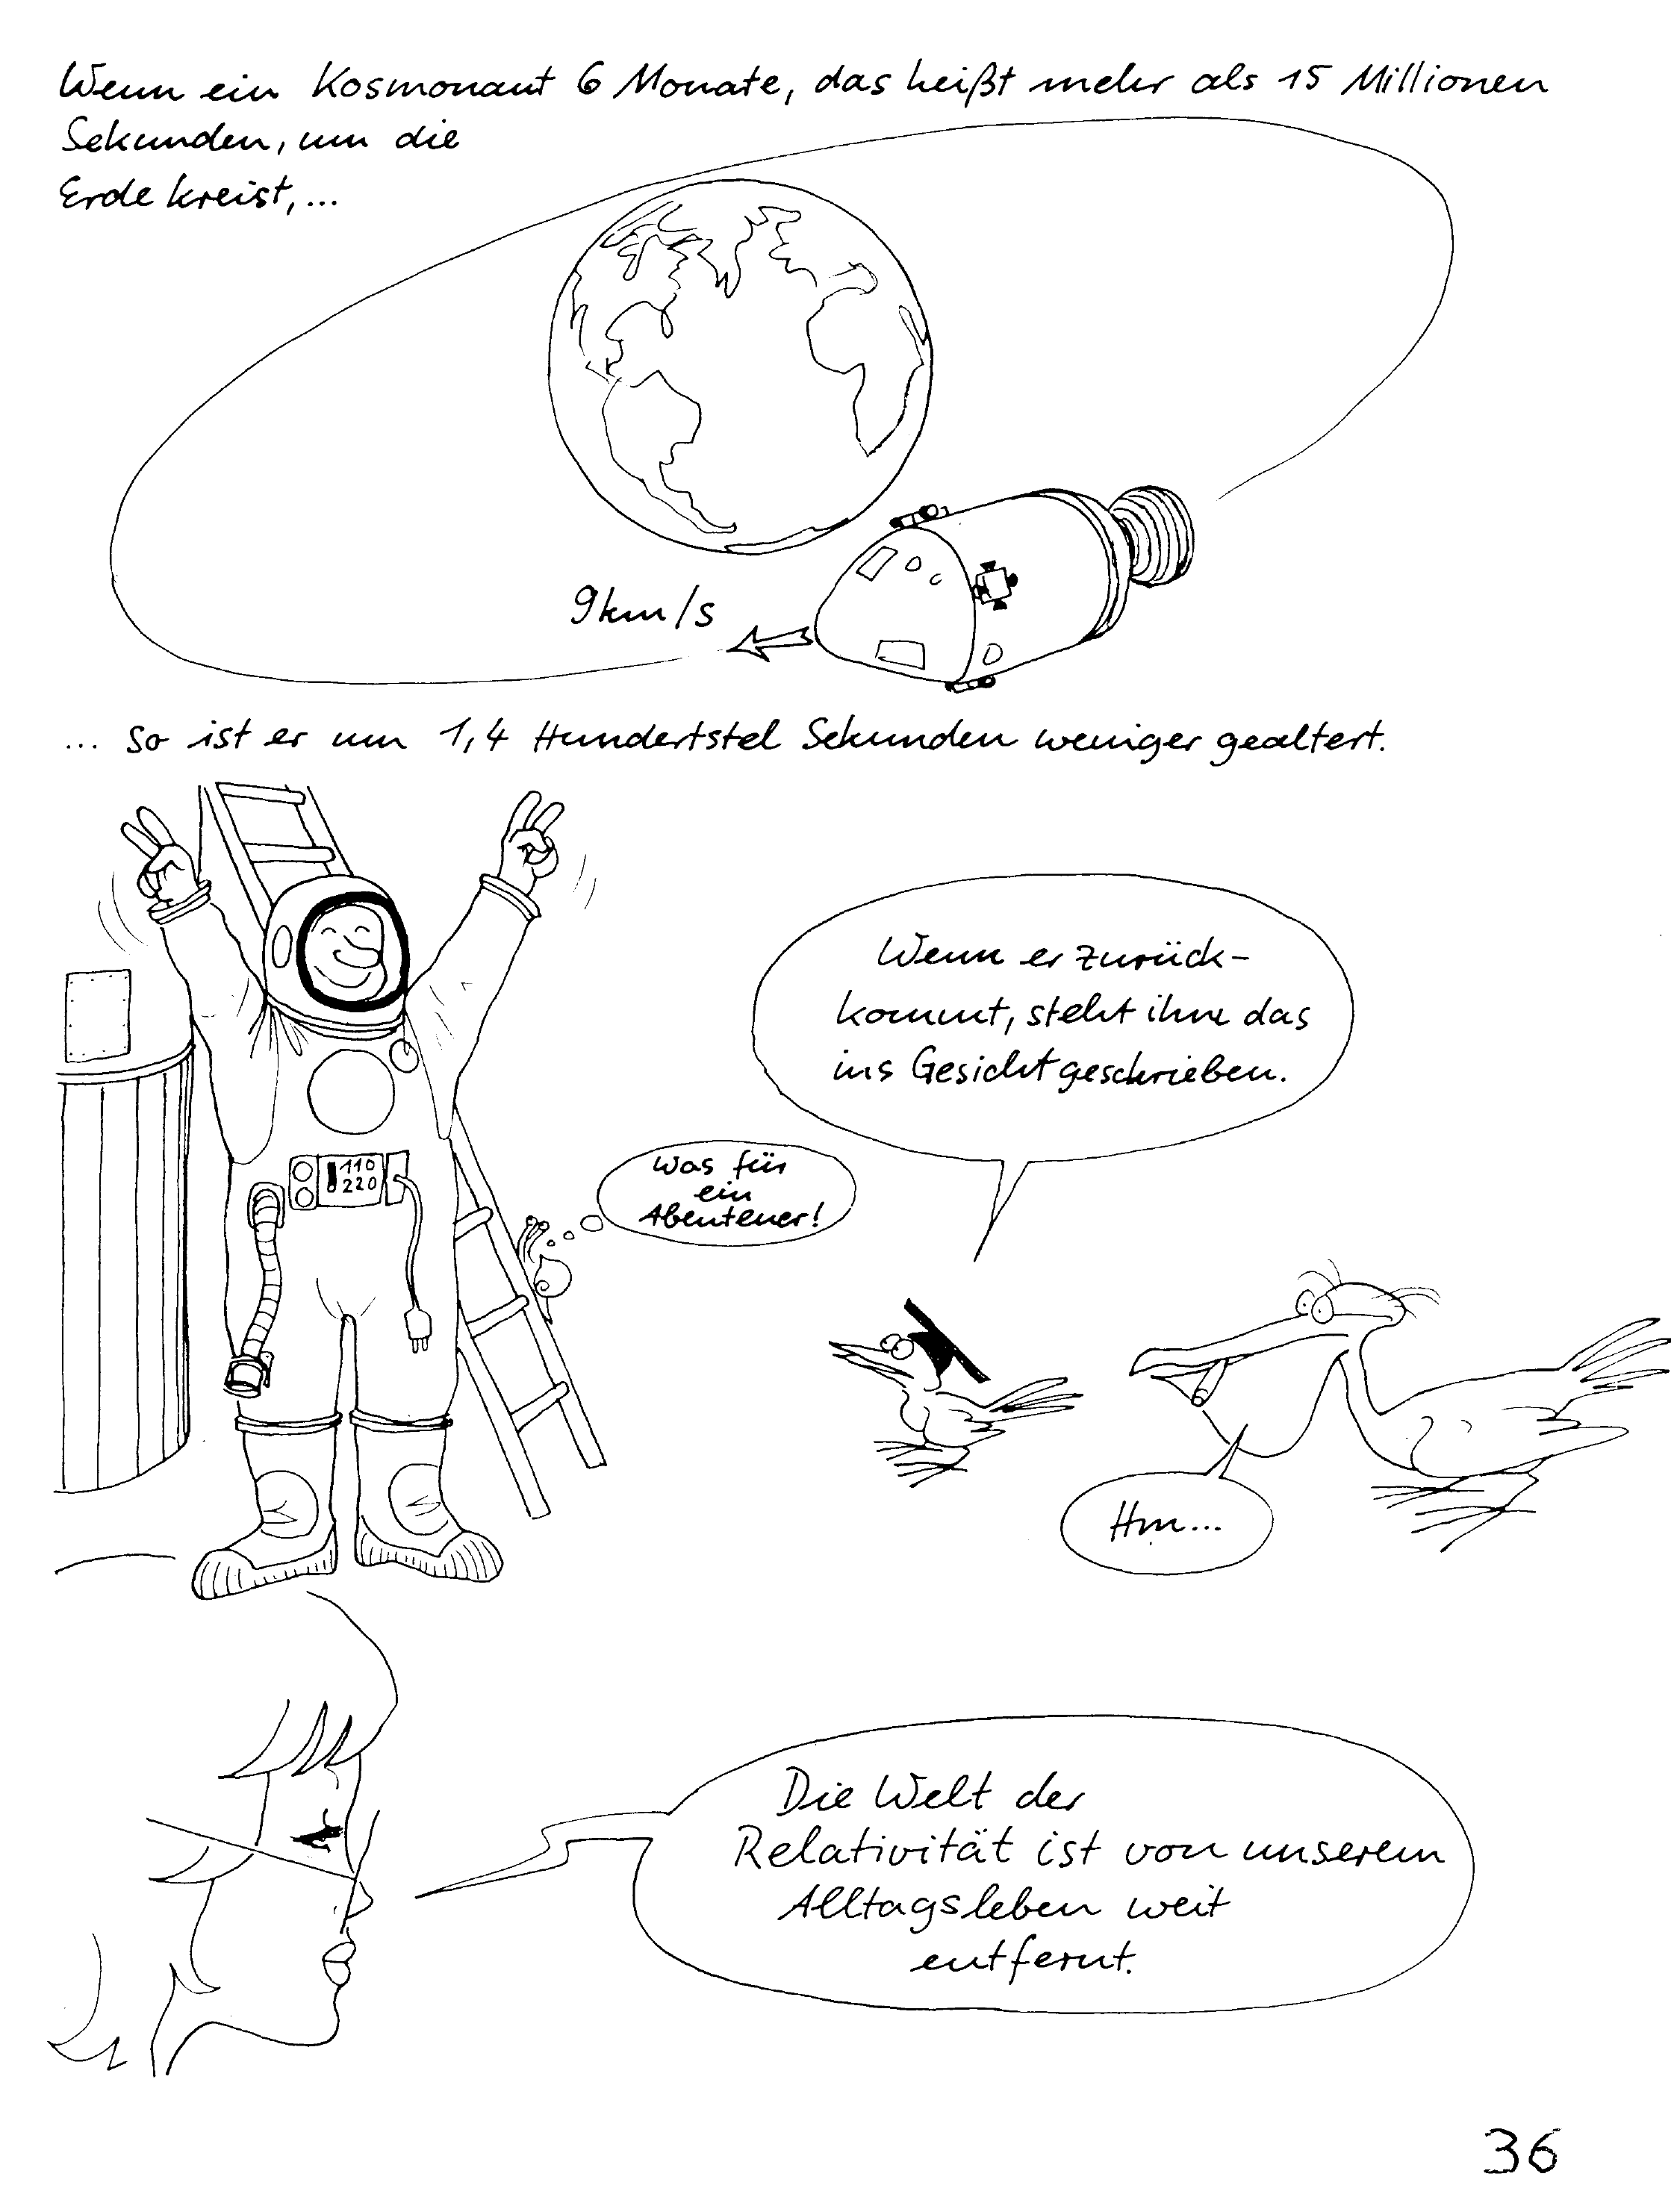 Wenn ein Kosmonaut 6 Monate, das heißt mehr als 15 Millionen
Sekunden, um die
Erde kreist,...
9km/s
... so ist er um 1,4 Hundertstel Sekunden weniger gealtert.
Wenn er zurück-
kommt, steht ihm das
ins Gesicht geschrieben.
Was für
ein
Abenteuer!
110
220
Hm...
Die Welt der
Relativität ist von unserem
Alltagsleben weit
entfernt.
36